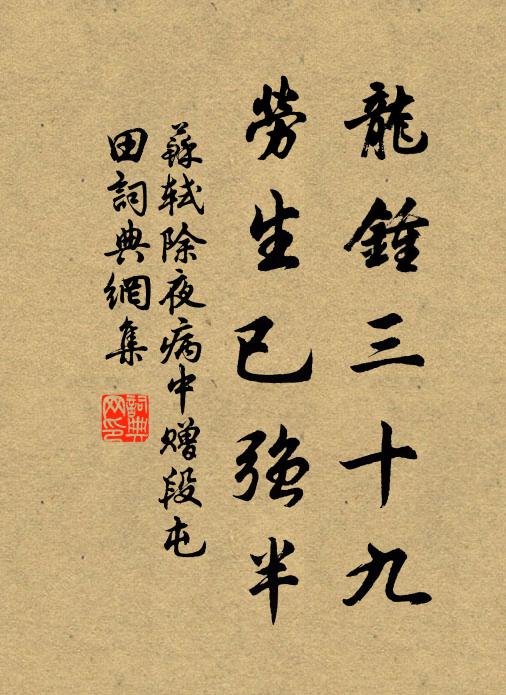 龍鍾三十九
勞生已強半
蘇軾除夜病中贈段屯
田詞典網集
詞典
网印